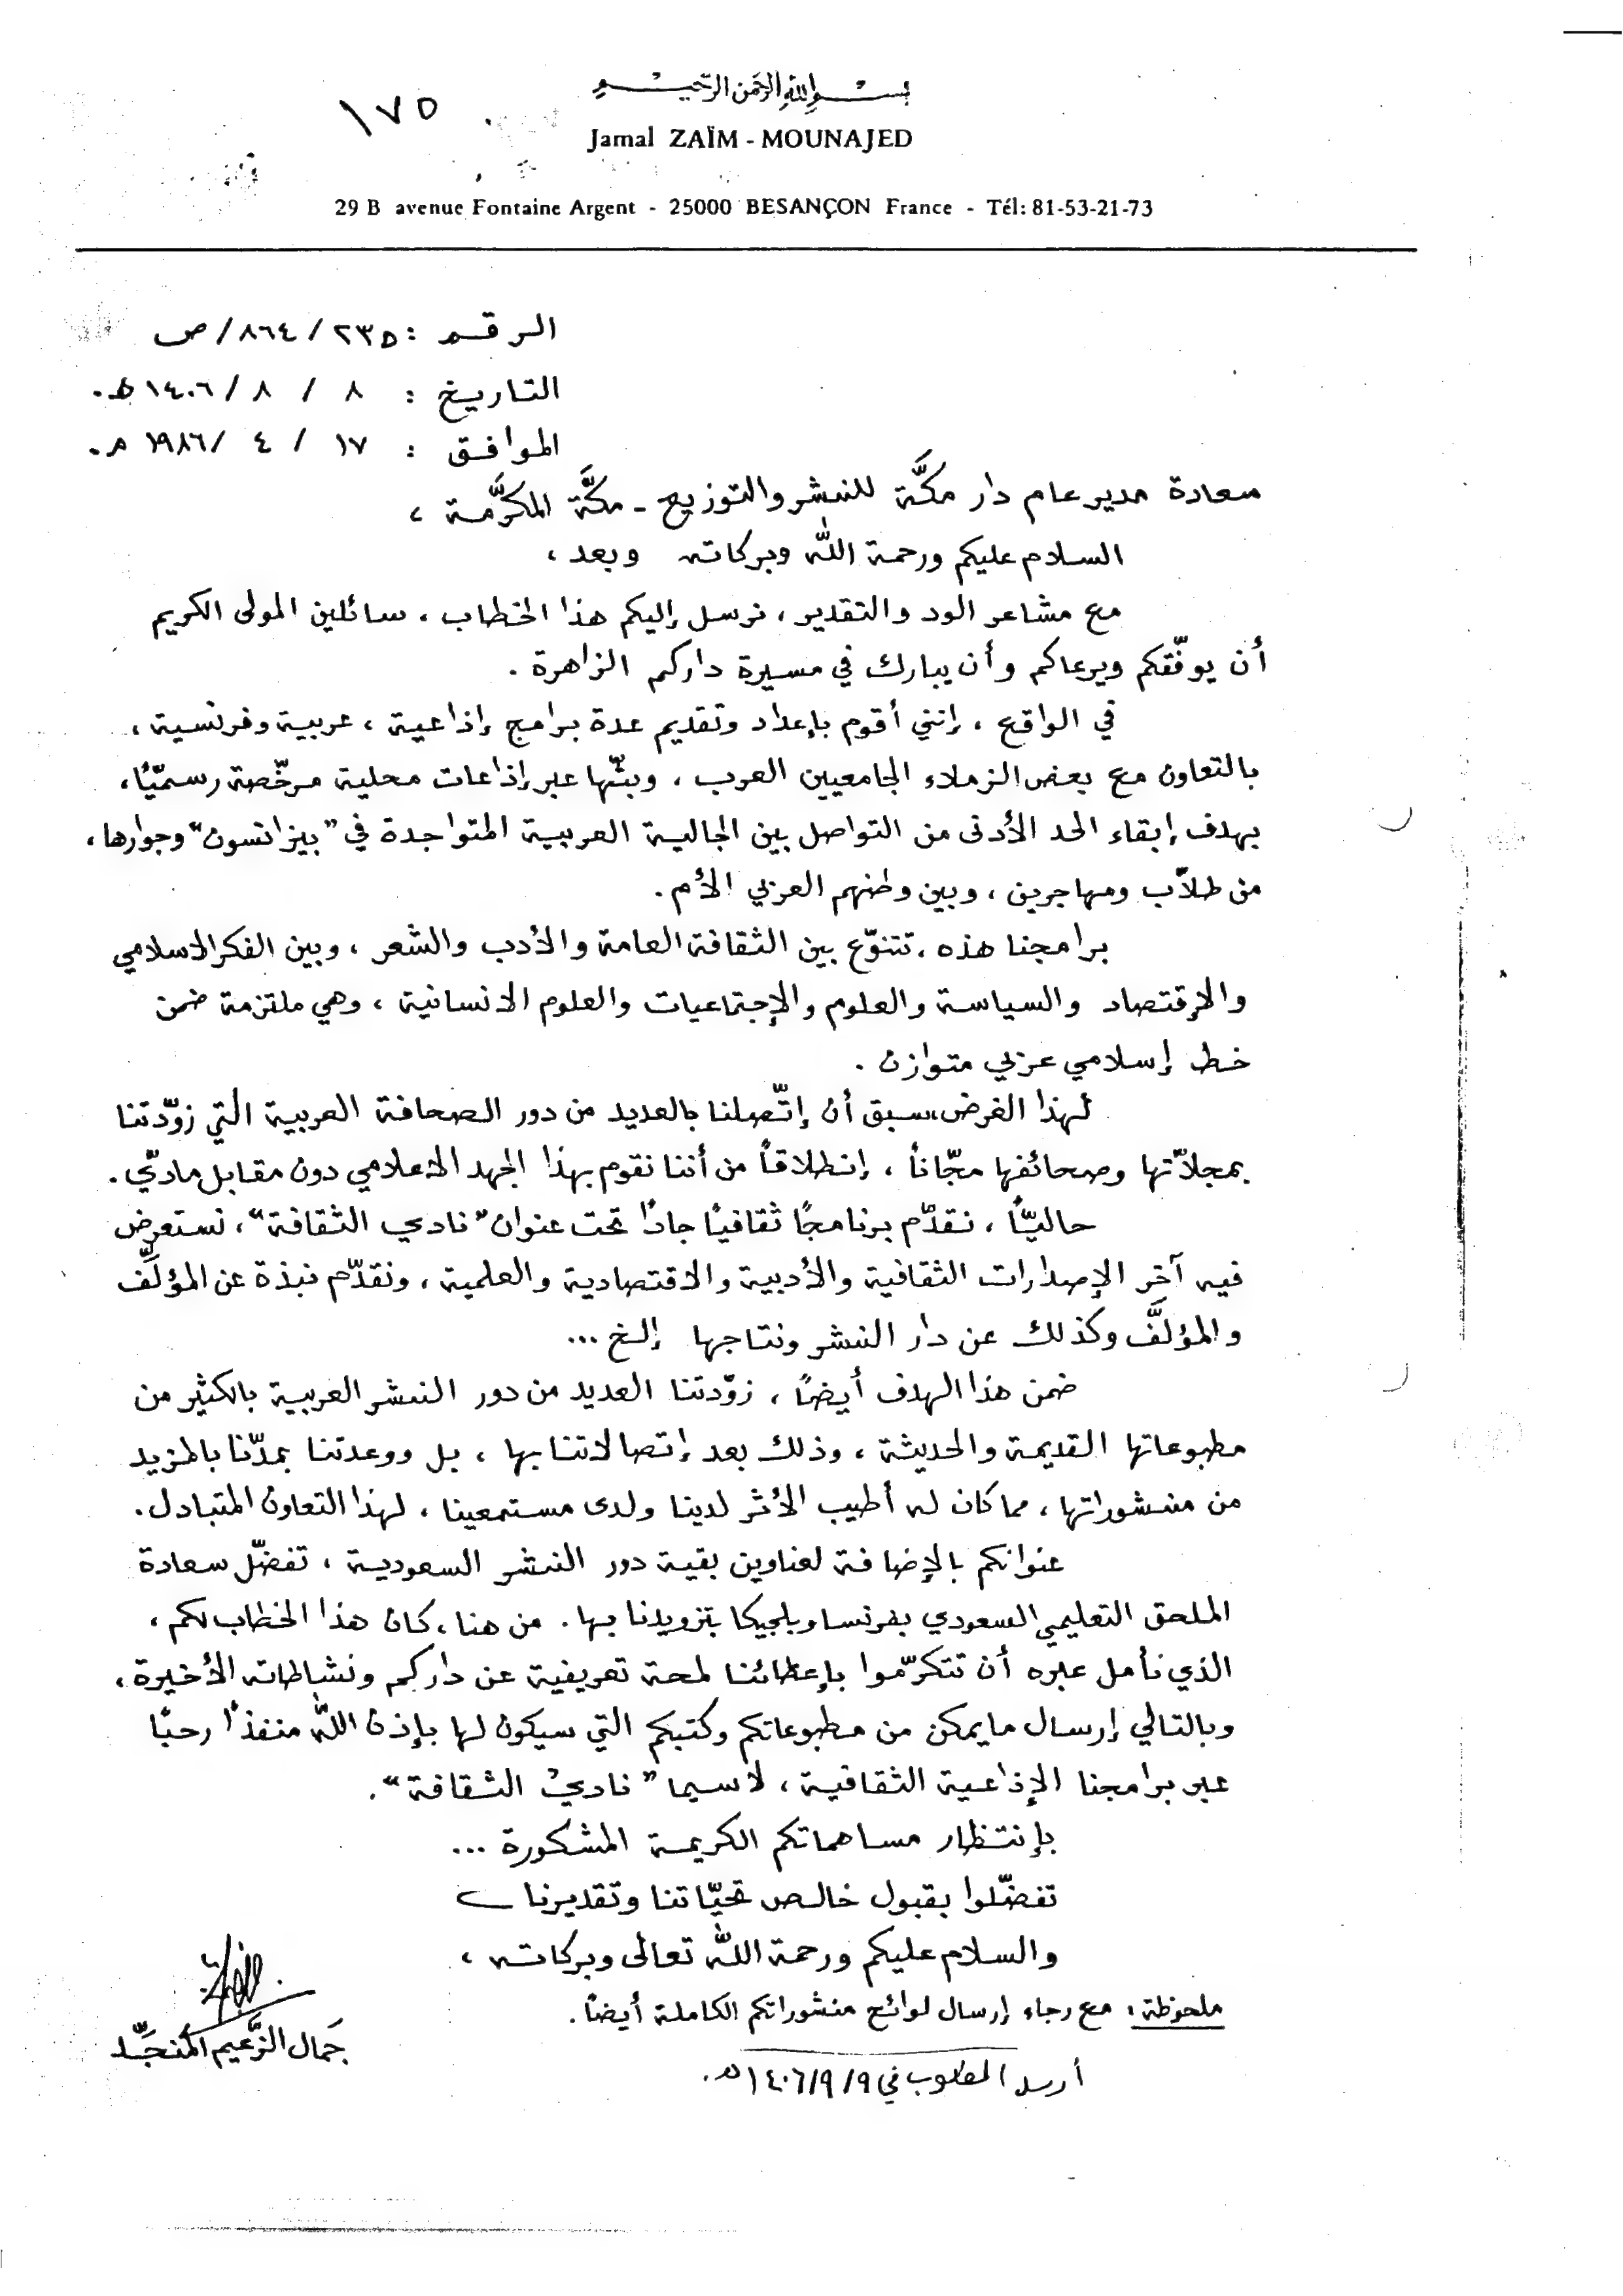 بسم الله الرحمن الرحيم
١٧٥
Jamal ZAÏM - MOUNAJED
29 B avenue Fontaine Argent - 25000 BESANÇON France - Tél: 81-53-21-73
الرقم : ٢٣٥ / ٨٦٤ / ص
التاريخ : ٨ / ٨ / ١٤٠٦ هـ.
الموافق : ١٧ / ٤ / ١٩٨٦ م.
سعادة مدير عام دار مكَّة للنشر والتوزيع - مكَّة المكرَّمة ،
السلام عليكم ورحمة اللّه وبركاته وبعد ،
مع مشاعر الود والتقدير ، نرسل إليكم هذا الخطاب ، سائلين المولى الكريم
أن يوفّقكم ويرعاكم وأن يبارك في مسيرة داركم الزاهرة .
في الواقع ، إنني أقوم بإعداد وتقديم عدة برامج إذاعية ، عربية وفرنسية ،
بالتعاون مع بعض الزملاء الجامعيين العرب ، وبثّها عبر إذاعات محلية مرخّصة رسميّاً ،
بهدف إبقاء الحد الأدنى من التواصل بين الجالية العربية المتواجدة في "بيزانسون" وجوارها ،
من طلاّب ومهاجرين ، وبين وطنهم العربي الأم .
برامجنا هذه ، تتنوّع بين الثقافة العامة والأدب والشعر ، وبين الفكر الاسلامي
والإقتصاد والسياسة والعلوم والإجتماعيات والعلوم الانسانية ، وهي ملتزمة ضمن
خط إسلامي عربي متوازن .
لهذا الغرض ، سبق أن إتّصلنا بالعديد من دور الصحافة العربية الّتي زوّدتنا
بمجلاّتها وصحائفها مجّاناً ، إنطلاقاً من أننا نقوم بهذا الجهد الاعلامي دون مقابل مادّي .
حاليّاً ، نقدّم برنامجًا ثقافيًا جادًا تحت عنوان "نادي الثقافة" ، نستعرض
فيه آخر الإصدارات الثقافية والأدبية والاقتصادية والعلمية ، ونقدّم نبذة عن المؤلِّف
والمؤلَّف وكذلك عن دار النشر ونتاجها إلخ ...
ضمن هذا الهدف أيضًا ، زوّدتنا العديد من دور النشر العربية بالكثير من
مطبوعاتها القديمة والحديثة ، وذلك بعد إتصالاتنا بها ، بل ووعدتنا بمدّنا بالمزيد
من منشوراتها ، مما كان له أطيب الأثر لدينا ولدى مستمعينا ، لهذا التعاون المتبادل .
عنوانكم بالإضافة لعناوين بقية دور النشر السعودية ، تفضّل سعادة
الملحق التعليمي السعودي بفرنسا وبلجيكا بتزويدنا بها . من هنا ، كان هذا الخطاب لكم ،
الذي نأمل عبره أن تتكرّموا بإعطائنا لمحة تعريفية عن داركم ونشاطاته الأخيرة ،
وبالتالي إرسال مايمكن من مطبوعاتكم وكتبكم التي سيكون لها بإذن اللّه منفذاً رحبًا
عبر برامجنا الإذاعية الثقافية ، لاسيما "نادي الثقافة" .
بإنتظار مساهماتكم الكريمة المشكورة ...
تفضّلوا بقبول خالص تحيّاتنا وتقديرنا
والسلام عليكم ورحمة اللّه تعالى وبركاته ،
ملحوظة : مع رجاء إرسال لوائح منشوراتكم الكاملة أيضاً .
جَمال الزَّعيم المُنجَّد
أرسل المطلوب في ٩/٩/١٤٠٦ هـ.